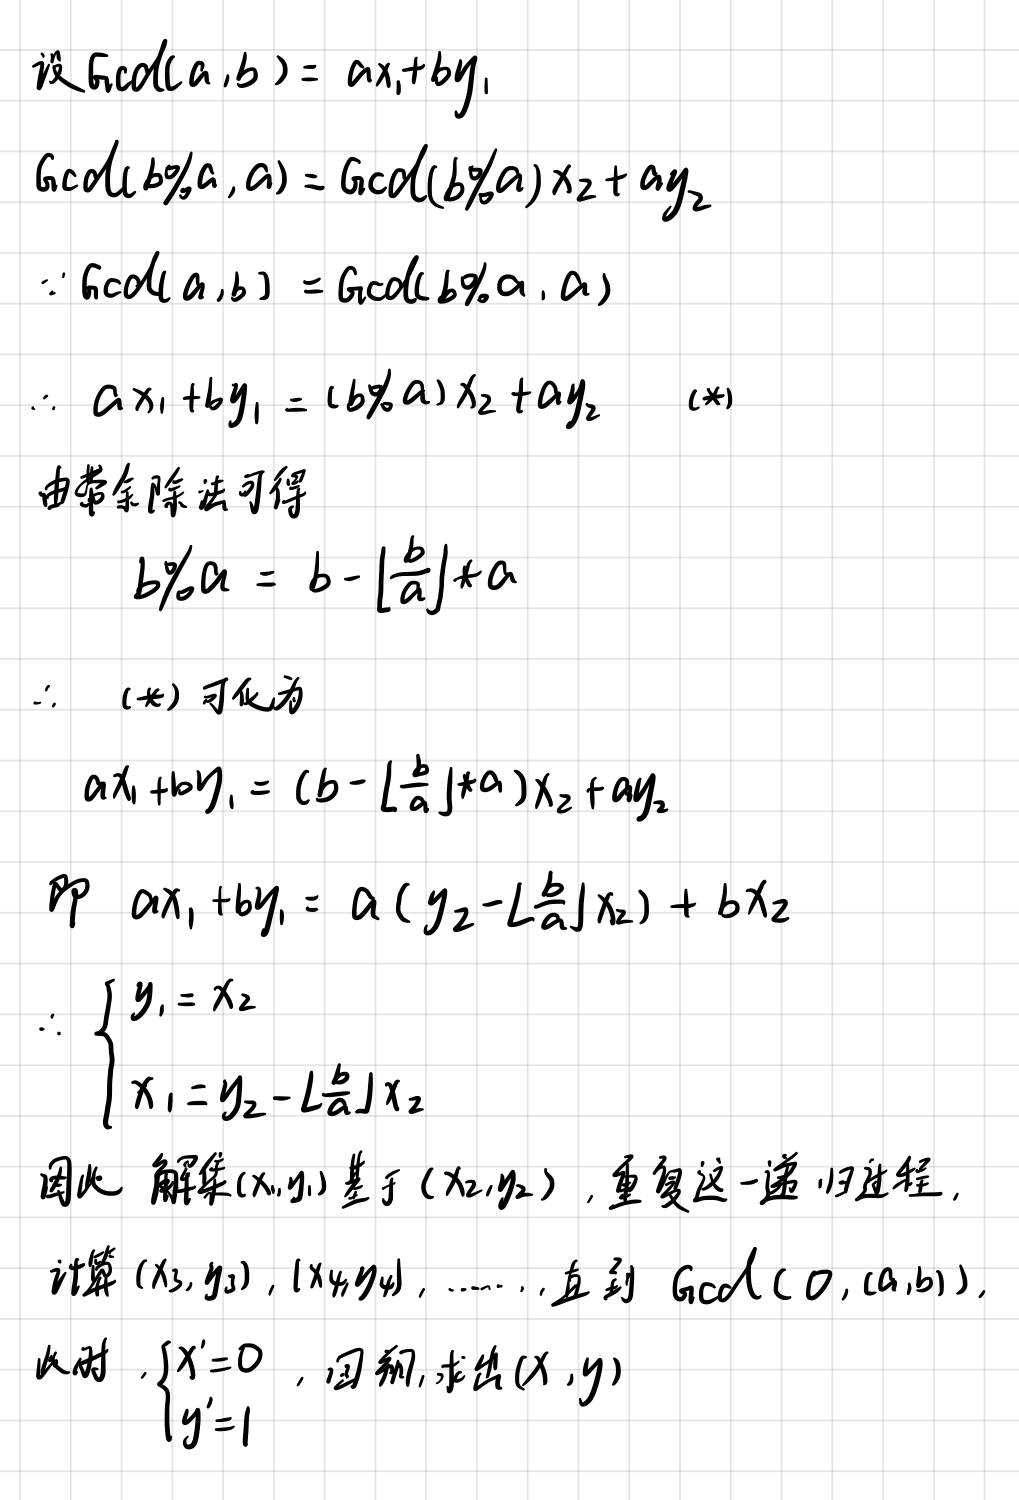 设Gcd(a,b) = ax₁+by₁
Gcd(b%a,a) = Gcd(b%a)x₂+ay₂
∵ Gcd(a,b) = Gcd(b%a,a)
∴ ax₁+by₁ = (b%a)x₂+ay₂ (*)
由带余除法可得
b%a = b-⌊b/a⌋*a
∴ (*)可化为
ax₁+by₁ = (b-⌊b/a⌋*a)x₂+ay₂
即 ax₁+by₁ = a(y₂-⌊b/a⌋x₂) + bx₂
∴ { y₁ = x₂
x₁ = y₂-⌊b/a⌋x₂
因此 解集(x₁,y₁)基于(x₂,y₂),重复这一递归过程,
计算(x₃,y₃),(x₄,y₄),……,直到 Gcd(0,(a,b)),
此时,{ x'=0 ,回溯,求出(x,y)
y'=1